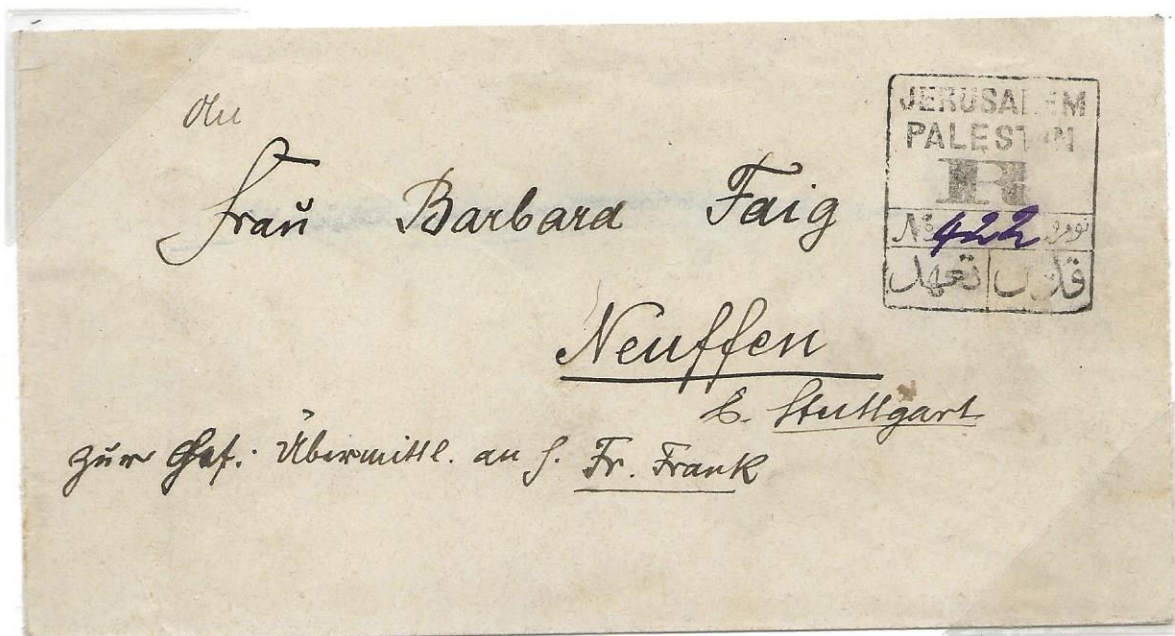 An
Frau Barbara Faig
Neuffen
b. Stuttgart
zur Gef. Übermittl. an H. Fr. Frank
JERUSALEM
PALESTIN
R
No 422 نومرو
تعهد قدس